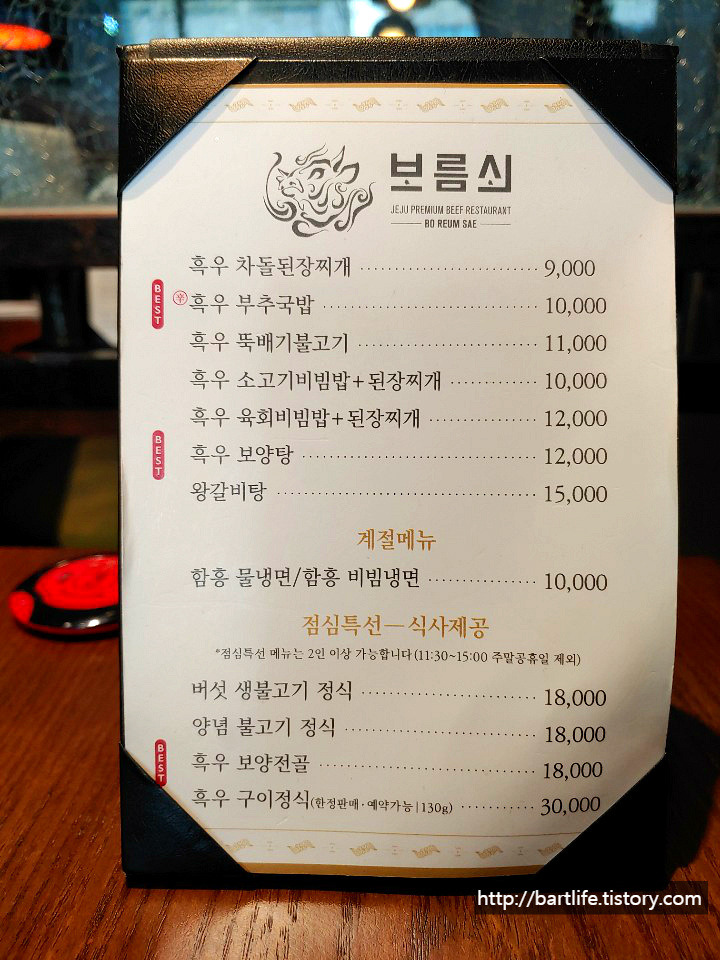 보름쇠
JEJU PREMIUM BEEF RESTAURANT
BO REUM SAE
흑우 차돌된장찌개 9,000
BEST 辛 흑우 부추국밥 10,000
흑우 뚝배기불고기 11,000
흑우 소고기비빔밥+된장찌개 10,000
흑우 육회비빔밥+된장찌개 12,000
BEST 흑우 보양탕 12,000
왕갈비탕 15,000
계절메뉴
함흥 물냉면/함흥 비빔냉면 10,000
점심특선—식사제공
*점심특선 메뉴는 2인 이상 가능합니다(11:30~15:00 주말공휴일 제외)
버섯 생불고기 정식 18,000
양념 불고기 정식 18,000
BEST 흑우 보양전골 18,000
흑우 구이정식(한정판매·예약가능|130g) 30,000
http://bartlife.tistory.com